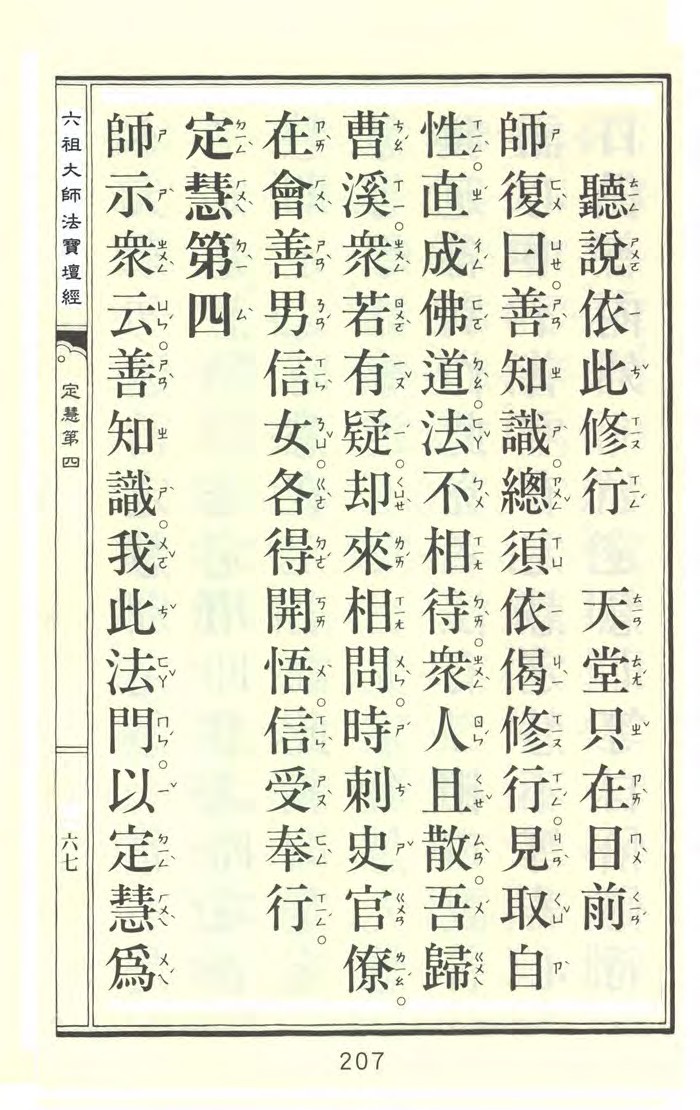 聽說依此修行　天堂只在目前
師復曰。善知識總須依偈修行。見取自
性。直成佛道。法不相待。眾人且散。吾歸
曹溪。眾若有疑。却來相問。時刺史官僚。
在會善男信女。各得開悟。信受奉行。
定慧第四
師示眾云。善知識。我此法門。以定慧為
六祖大師法寶壇經
定慧第四
六七
207